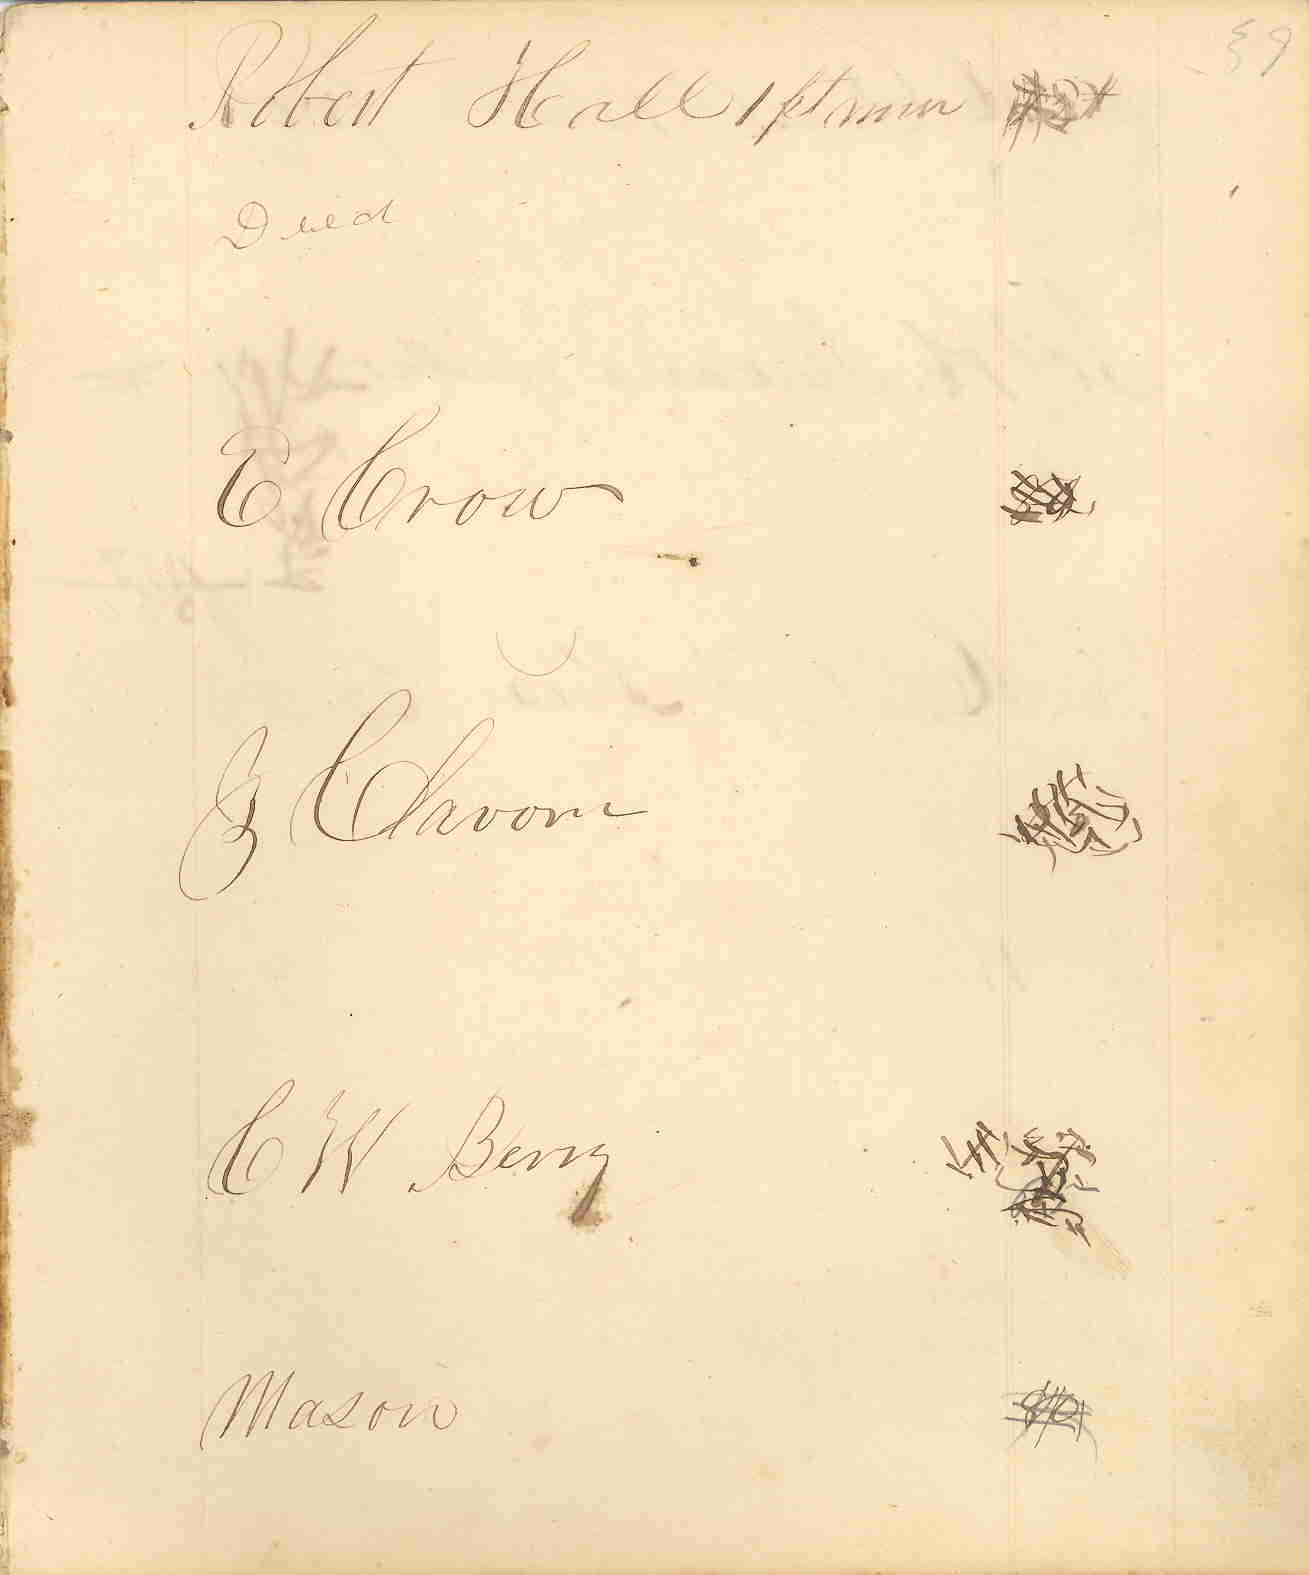 39
Robert Hall 1 pt
Died
E Crow
J Clavom
C W Berry
Mason